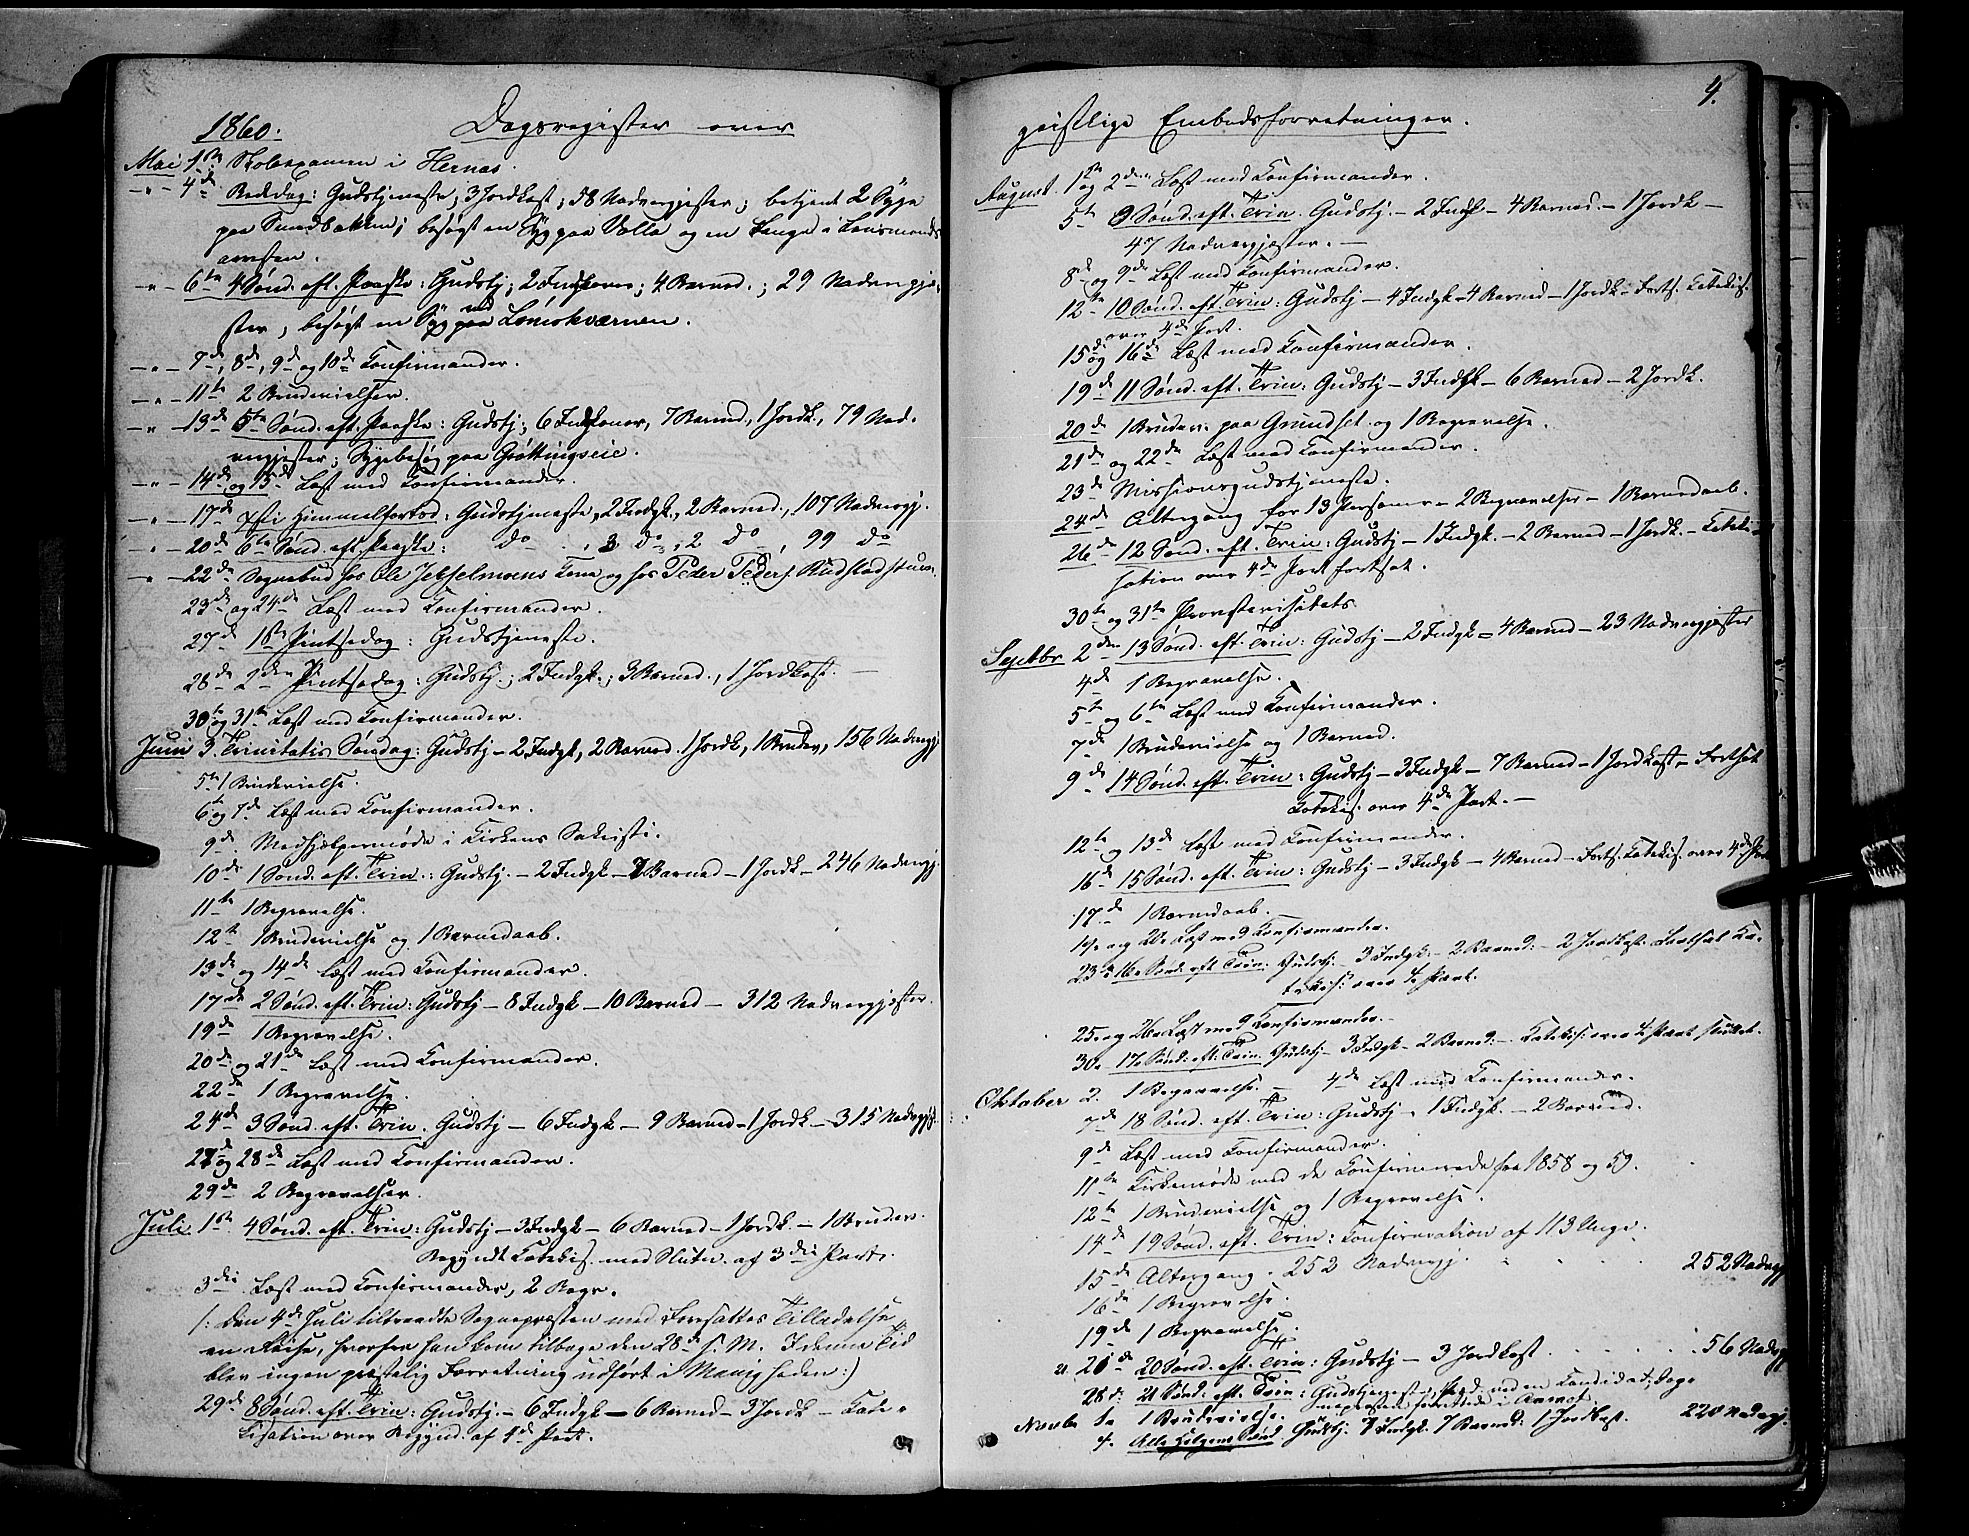 1860. Dagsregister over
Mai 1ste Skoleexamen i Hernæs.
-"- 4de Bededag: Gudstjeneste; 3 Jordkast; 58 Nadvergjester; betjent 2 Syge
paa Smedbakken; besøgt en Syg paa Volla og en Fange i Lensmands
arresten.
-"- 6te 4 Sønd. eft. Paaske: Gudstj; 2 Indgkoner; 4 Barned.; 29 Nadvergjæ-
ster; besøgt en Syg ved
-"- 7de, 8de, 9de og 10de Confirmander.
-"- 11te 2 Brudevielser.
-"- 13de 5te Sønd. eft. Paaske: Gudstj; 6 Indgkoner, 7 Barned., 1 Jordk., 79 Nad-
vergjester; Sygebesøg paa Grøttingseie.
-"- 14de og 15de Læst med Confirmander.
-"- 17de Xsti Himmelfartsd: Gudstjeneste, 2 Indgk., 2 Barned., 107 Nadvergj.
-"- 20de 6te Sønd. eft. Paaske: do , 3 do, 2 do, 99 do
-"- 22de Sognebud hos Ole Kone og hos Peder Peders.
23de og 24de Læst med Confirmander.
27de 1ste Pintsedag: Gudstjeneste.
28de 2den Pintsedag: Gudstj.; 2 Indgk.; 3 Barned., 1 Jordkast. —
30te og 31te Læst med Confirmander.
Juni 3. Trinitatis Søndag: Gudstj – 2 Indgk, 2 Barned. 1 Jordk, 1 Brudev, 156 Nadvergj
5te 1 Brudevielse.
6te og 7de Læst med Confirmander.
9de Medhjælpermøde i Kirkens Sakristi.
10de 1 Sønd. eft. Trin.: Gudstj. – 2 Indgk – Barned – 1 Jordk – 246 Nadvergj
11te 1 Begravelse.
12te 1 Brudevielse og 1 Barnedaab.
13de og 14de Læst med Confirmander.
17de 2 Sønd. eft. Trin: Gudstj – 8 Indgk – 10 Barned – 312 Nadvergjæster.
19de 1 Begravelse.
20de og 21de Læst med Confirmander.
22de 1 Begravelse.
24de 3 Sønd. eft. Trin. Gudstj – 6 Indgk – 9 Barned – 1 Jordk – 315 Nadvgj
27de og 28de Læst med Confirmander.
29de 2 Begravelser.
Juli 1ste 4 Sønd. eft. Trin: Gudstj – 3 Indgk – 6 Barned – 1 Jordk. – 1 Brudev.
Begyndt Katekis. med Slutn. af 3die Part.
3die Læst med Confirmander, 2 Begr.
/: Den 4de Juli tiltraadte Sognepræsten med Foresattes Tilladelse
en Reise, hvorfra han kom tilbage den 28de s. M. I denne Tid
blev ingen præstelig Forretning udført i Menigheden :/
29de 8 Sønd. eft. Trin: Gudstj. – 6 Indgk – 6 Barned – 3 Jordk – Kate-
kisation over Begynd. af 4de Part.
4.
geistlige Embedsforretninger.
August. 1ste og 2den Læst med Confirmander.
5te 9 Sønd. eft. Trin. Gudstj. – 2 Indgk – 4 Barned. – 1 Jordk –
47 Nadvergjæster. —
8de og 9de Læst med Confirmander.
12te 10 Sønd. eft. Trin: Gudstj – 4 Indgk – 4 Barned – 1 Jordk – Forts. Katekis.
over 4de Part.
15de og 16de Læst med Confirmander.
19de 11 Sønd. eft. Trin: Gudstj – 3 Indgk – 6 Barned – 2 Jordk.
20de 1 Brudev. paa Grundset og 1 Begravelse.
21de og 22de Læst med Confirmander.
23de Missionsgudstjeneste.
24de Altergang for 13 Personer – 2 Begravelser – 1 Barnedaab.
26de 12 Sønd. eft. Trin: Gudstj – 1 Indgk. – 2 Barned – 1 Jordk. – Kateki-
sation over 4de Part fortsat.
30te og 31te Provstevisitats
Septbr 2den 13 Sønd. eft. Trin: Gudstj – 2 Indgk – 4 Barned – 23 Nadvergjæster
4de 1 Begravelse.
5te og 6te Læst med Confirmander.
7de 1 Brudevielse og 1 Barned.
9de 14 Sønd. eft. Trin: Gudstj – 3 Indgk – 7 Barned – 1 Jordkast – Fortsat
Katekis. over 4de Part. —
12te og 13de Læst med Confirmander.
16de 15 Sønd. eft. Trin: Gudstj – 3 Indgk – 4 Barned – Forts. Katekis. over 4de Part
17de 1 Barnedaab.
19. og 20. Læst med Confirmander.
23. 16. Sønd. eft Trin. Gudstj. – 3 Indgk. – 2 Barned. – 2 Jordkast. Fortsat Ka-
tekis: over 4 Part.
25. og 26. Læst med Confirmander. –
30. 17. Sønd: eft. Trin. Gudstj – 3 Indgk – 2 Barned. – Katekis: over 4 Part sluttet.
Oktober 2. 1 Begravelse. – 4de Læst med Confirmander.
7de 18 Sønd. eft. Trin: Gudstj – 1 Indgk. – 2 Barned.
9de Læst med Confirmander.
11te Kirkemøde med de Confirmerede fra 1858 og 59.
12te 1 Brudevielse og 1 Begravelse.
14de 19 Sønd. eft. Trin: Confirmation af 113 Unge.
15de Altergang. 252 Nadvergj. 252 Nadvgj
16de 1 Begravelse.
19de 1 Begravelse.
21de 20 Sønd. eft. Trin: Gudstj – 3 Jordkast. 56 Nadvgj
28de 21 Sønd. eft. Trin: Gudstjeneste, Præd. ved en Candidat; Sog-
nepræsten forrettede i Aamot.
Novbr 1. 1 Brudevielse.
4. Alle Helgens Sønd. Gudstj. 7 Indgk. 7 Barned: 1 Jordkast. 220 Nadvgj.